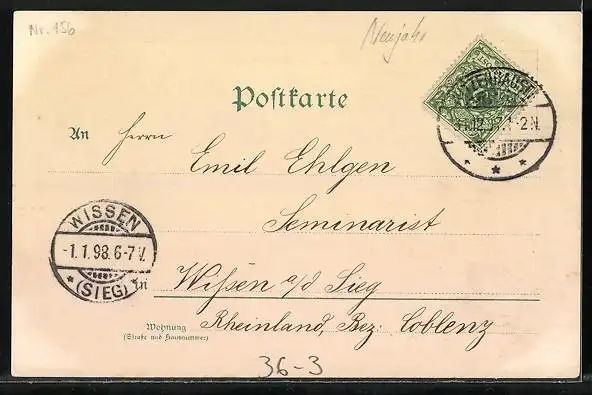 Nr. 156
Neujahr
Postkarte
An Herrn
Emil Ehlgen
Seminarist
WISSEN
-1.1.98.6-7V.
* (SIEG) *
in Wissen a/d Sieg
Rheinland, Bez. Coblenz
Wohnung
(Straße und Hausnummer)
36-3